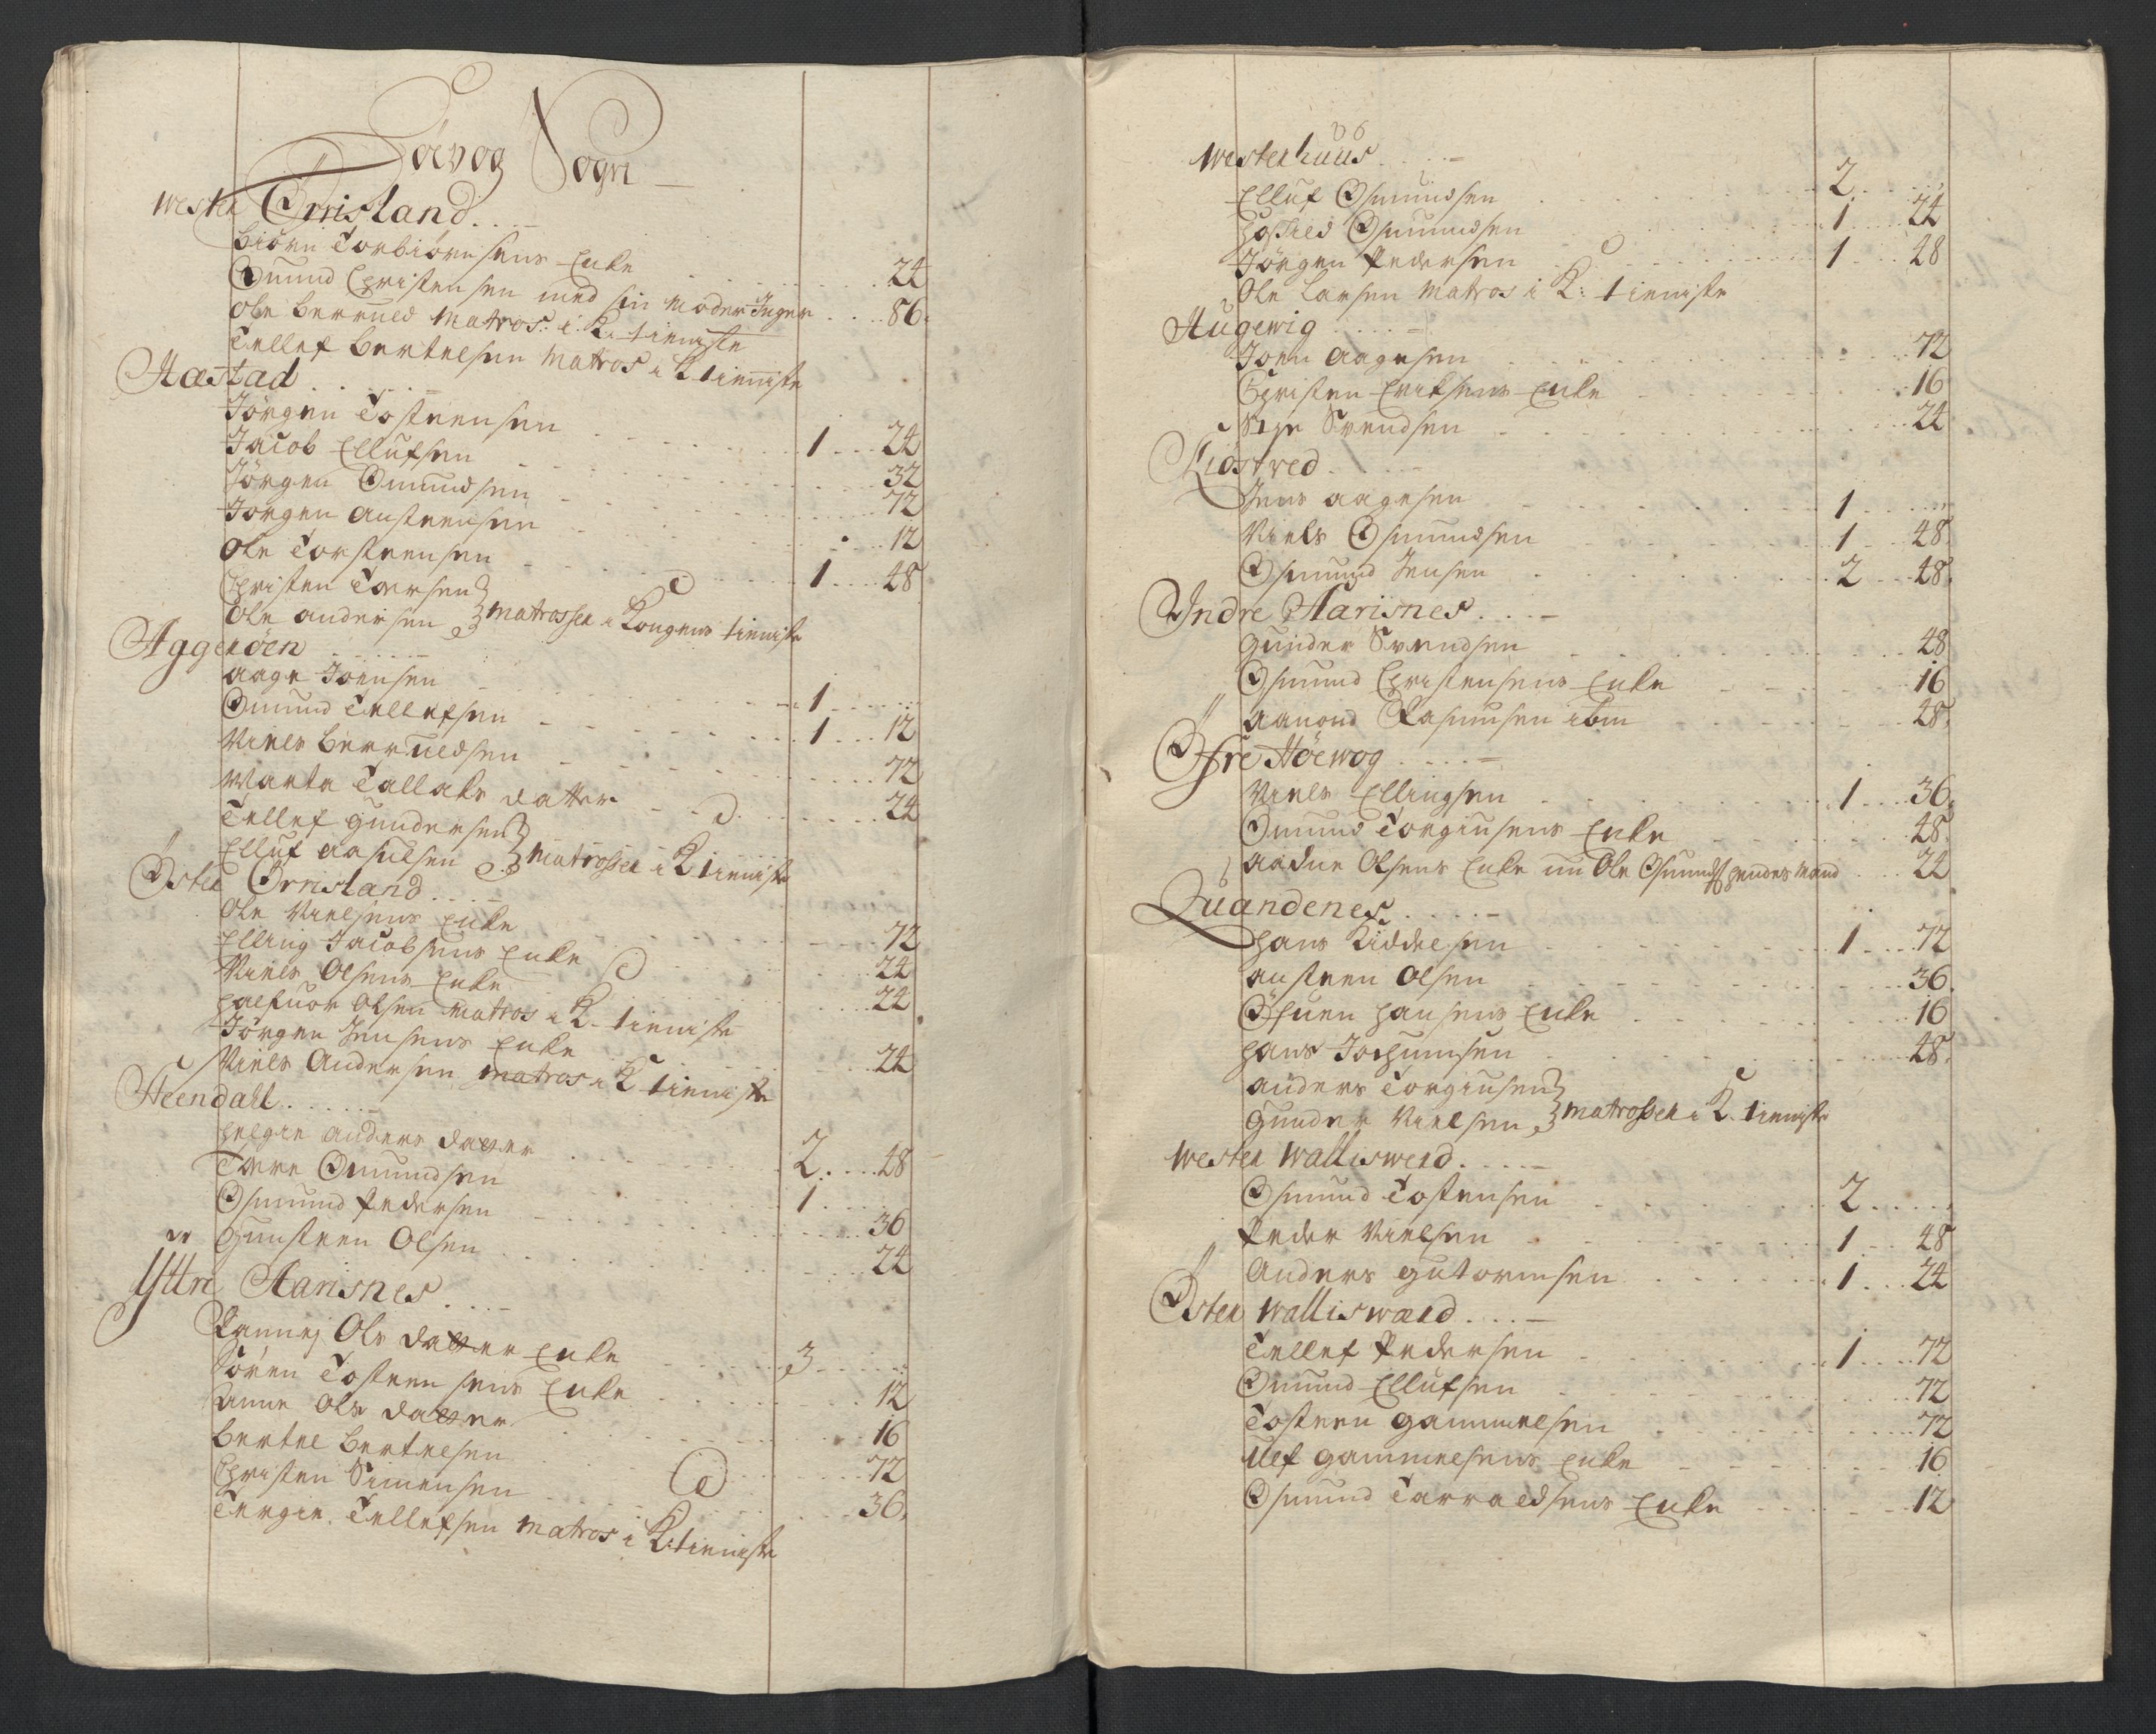 Höevog Sogn
Wester Örrisland
Biörn Torbiörnsens Enke
Omund Christensen med sin Moder Inger . . 24
Ole Berruld Matros: i K: tieniste . . 86.
Tellef Bertelsen Matros i K tieniste
Hæstad
Jörgen Tosteensen
Jacob Ellufsen . . 1 . . 24
Jörgen Omundsen . . 32
Jorgen Austeensen . . 72
Ole Torsteensen . . 12
Christen Torsen . . 1 . . 48
Ole Andersen } Matrosser i Kongens tieniste
Aggeröen
Aage Joensen
Omund Tellefsen . . 1
Niels Berruldsen . . 1 . . 12
Marta Tallaks datter . . 72
Tellef Gundersen . . 24
Elluf Aasulsen } Matrosser i K tieniste
Öster Örrisland
Ole Nielsens Enke
Elling Jacobsens Enke . . 72
Niels Olsens Enke . . 24
Halfuor Olsen Matros i K. tieniste . . 24
Jörgen Jensens Enke
Niels Andersen Matros i K tieniste . . 24
Steendahl
Helgie Anders datter
Tore Omundsen . . 2 . . 48
Osmund Pedersen . . 1
Gunsteen Olsen . . 36
24
Yttre Aarisnes
Rannej Ols datter Enke
Sören Tosteensens Enke . . 3
Anne Ols datter . . 12
Bertel Bertelsen . . 16
Christen Simensen . . 72
Tergie Tellefsen Matros i K: tieniste . . 36.
Westerhuus
Elluf Osmundsen . . 2
Osmundsen . . 1 . . 24
Jörgen Pedersen . . 1 . . 48
Ole Larsen Matros i K: tieniste
Augewig
Joen Aagesen . . 72
Christen Eriksens Enke . . 16
Svendsen . . 24
Kiostved
Jens Aagesen . . 1
Niels Osmundsen . . 1 . . 48.
Osmund Jensen . . 2 . . 48.
Indre Aarisnes
Gunder Svendsen . . 48
Osmund Christensens Enke . . 16
Aanond Rasmusen ibm . . 48.
Öfre Höewog
Niels Ellingsen . . 1 . . 36.
Omund Torgiusens Enke . . 48.
Aadne Olsens Enke nu Ole Osmunds: hendes Mand . . 24
Quandenes
Hans Kiddelsen . . 1 . . 72
Austeen Olsen . . 36.
Öfuen Hansens Enke . . 16
Hans Jochumsen . . 48.
Anders Torgiusen
Gunder Nielsen } Matrosser i K. tieniste
Wester Walliswerd
Osmund Tostensen . . 2
Peder Nielsen . . 1 . . 48
Anders Gutormsen . . 1 . . 24
Öster Walliswærd
Tellef Pedersen . . 1 . . 72
Omund Ellufsen . . 72
Tosteen Gammelsen . . 72
Ulef Gammelsens Enke . . 16
Osmund Tarraldsens Enke . . 12